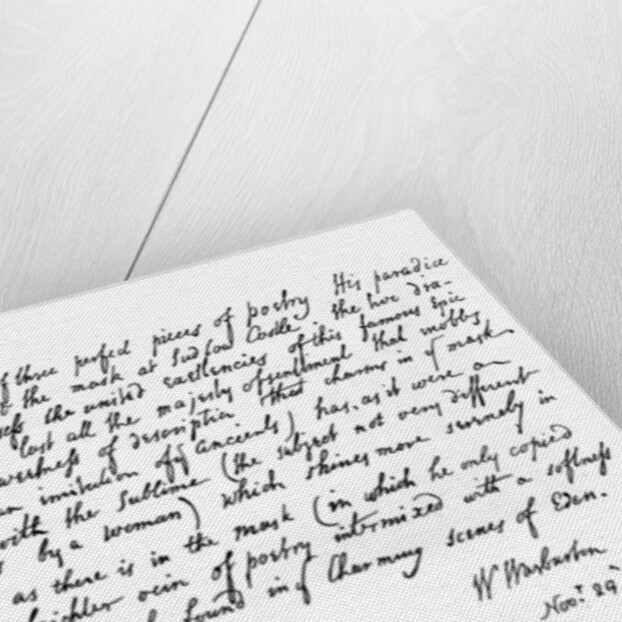 of three perfect pieces of poetry His paradice
& the mask at Ludlow Castle, the two dra-
the united excellencies of this famous Epic
lost all the majesty of sentiment that
of description that charms in yͤ mask
an imitation of yͤ ancients) has, as it were a
with the Sublime (the subject not very different
by a woman) which shines more serenely in
as there is in the mask (in which he only copied
brighter vein of poetry intermixed with a softness
found in yͤ Charming scenes of Eden.
W Warburton
Novͬ 29